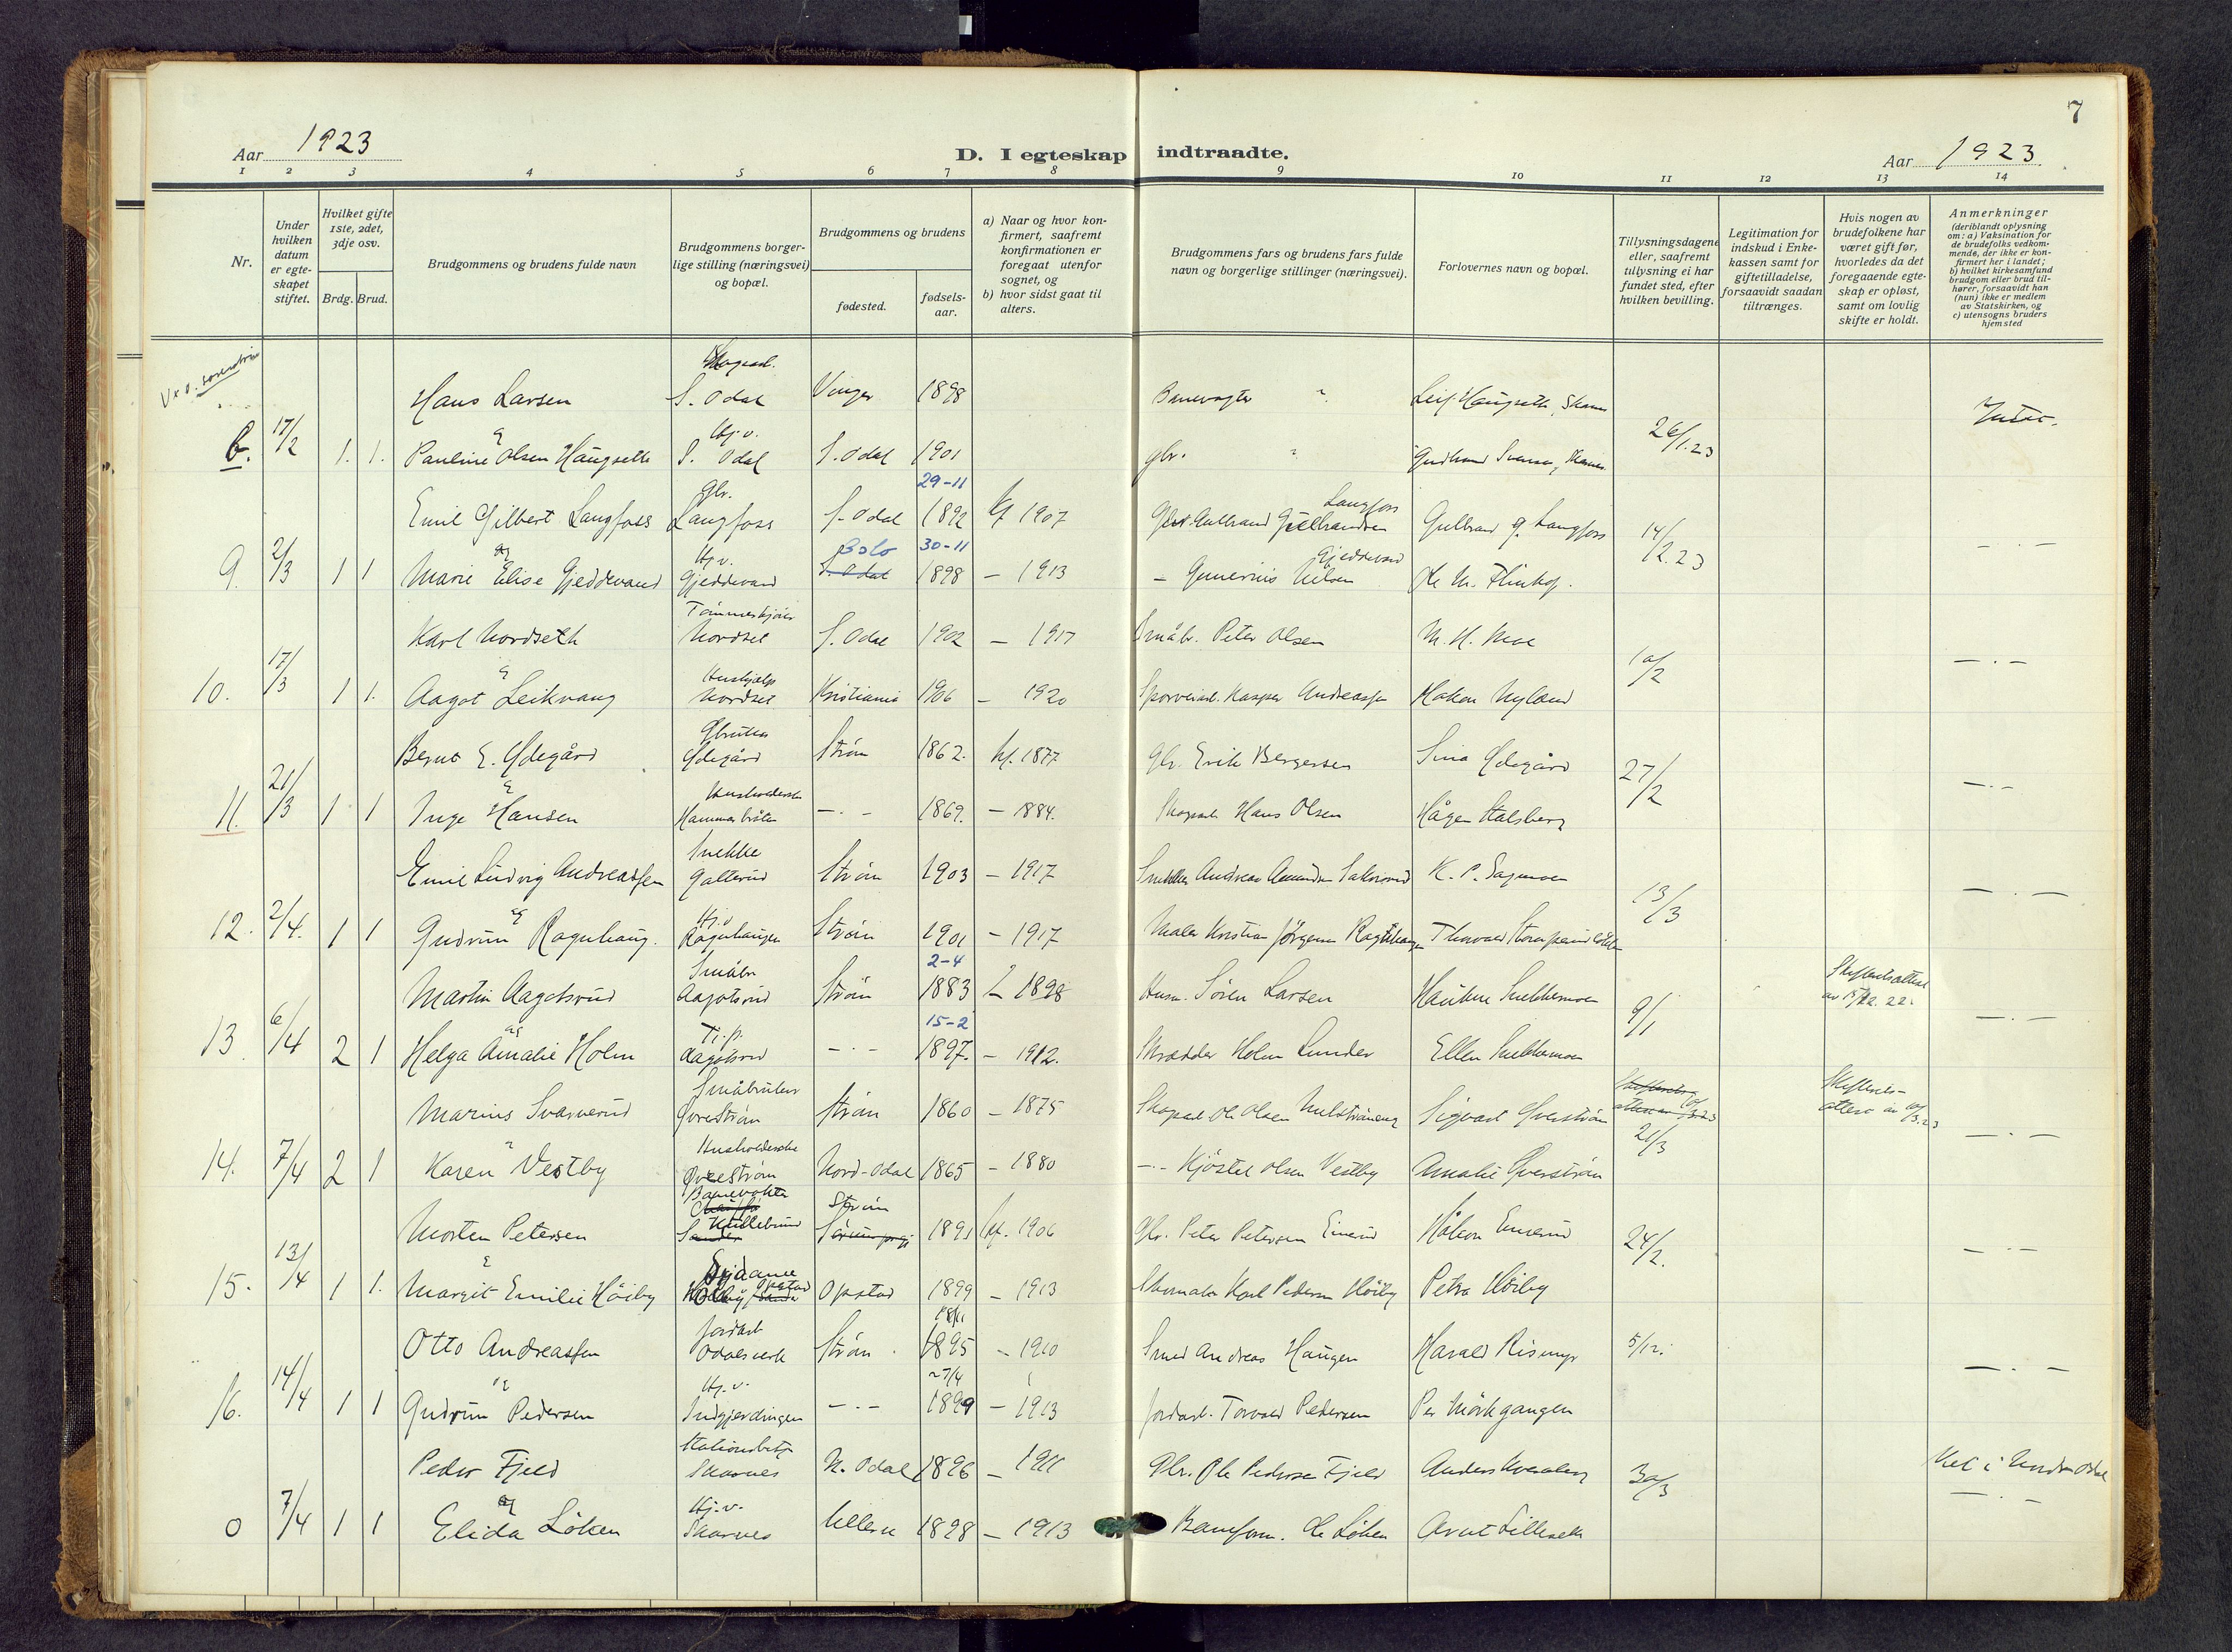 7
Aar 1923
D. I egteskap indtraadte.
Aar 1923.
1 2 3 4 5 6 7 8 9 10 11 12 13 14
Nr.
Under hvilken datum er egteskapet stiftet.
Hvilket gifte 1ste, 2det, 3dje osv.
Brdg. Brud.
Brudgommens og brudens fulde navn
Brudgommens borgerlige stilling (næringsvei) og bopæl.
Brudgommens og brudens
fødested.
fødselsaar.
a) Naar og hvor konfirmert, saafremt konfirmationen er foregaat utenfor sognet, og
b) hvor sidst gaat til alters.
Brudgommens fars og brudens fars fulde navn og borgerlige stillinger (næringsvei).
Forlovernes navn og bopæl.
Tillysningsdagene eller, saafremt tillysning ei har fundet sted, efter hvilken bevilling.
Legitimation for indskud i Enkekassen samt for giftetilladelse, forsaavidt saadan tiltrænges.
Hvis nogen av brudefolkene har været gift før, hvorledes da det foregaaende egteskap er opløst, samt om lovlig skifte er holdt.
Anmerkninger (deriblandt oplysning om: a) Vaksination for de brudefolks vedkommende, der ikke er konfirmert her i landet; b) hvilket kirkesamfund brudgom eller brud tilhører, forsaavidt han (hun) ikke er medlem av Statskirken, og c) utensogns bruders hjemsted
Hans Larsen S. Odal Vinger 1898 Banevogter
b. 17/2 1. 1. & Pauline Olsen Haugseth Hj.v. S. Odal S. Odal 1901 gbr. 26/1.23
29-11
Emil Gilbert Langfoss Gbr. Langfoss S. Odal 1892 kf 1907 Gulbrand Gulbrandsen Langfoss Gulbrand G. Langfoss 14/2.23
Oslo 30-11
9. 2/3 1 1 & Marie Elise Gjeddevand Hj.v. Gjeddevand S. Odal 1898 - 1913 - Gunerius Nilsen Gjeddevand Ole M. - . -
Karl Nordseth Nordset S. Odal 1902 - 1917 Småbr. Peter Olsen M. H. Moe 10/2
10. 17/3 1 1. & Aagot Leikvang Hushjælp Nordset Kristiania 1906 - 1920 Kasper Andreassen Hakon Nyland - . -
Bernt E. Ødegård Gbruker Ødegård Strøm 1862. kf. 1877 Gbr. Erik Bergersen Sina Ødegård 27/2
11. 21/3 1 1 & Inga Hansen Husholderske Hammerbråten - . - 1869. - 1884. Skogsarb. Hans Olsen Hågen Stalsberg - . -
Emil Ludvig Andreassen Snekker Galterud Strøm 1903 - 1917 Snekker Andreas Amundsen K. P. Sagmoen 13/3
12. 2/4. 1 1 & Gudrun Ragnhaug. Hj.v Ragnhaugen Strøm 1901 - 1917 Maler Kristian Jørgensen Thorvald - . -
2-4
Martin Aagotsrud Småbr Aagotsrud Strøm 1883 - 1898 Husm. Søren Larsen Haukur Snekkermoen 9/1 Skifteretsattest av 15/12. 22.
15-2
13. 6/4 2 1 & Helga Amalie Holm Tj.p. Aagotsrud - . - 1897. - 1912. Skrædder Holm Lunder Ellen Snekkermoen - . -
Marius Svarverud Småbruker Øvrestrøm Strøm 1860 - 1875 Skogsarb Ole Olsen Sigvart Øverstrøm 21/3 Skifterets-attest av 10/3.23
14. 7/4 2 1 & Karen Vestby Husholderske Øvrestrøm Nord-Odal 1865 - 1880 - . - Kjøstel Olsen Vestby Amalie Øverstrøm - . -
Morten Petersen Banevokter Strøm 1891 kf. 1906 Gbr. Peter Petersen Einerud Håkon Einerud 24/2.
15. 13/4 1 1. & Margit Emilie Høiby Opstad Opstad 1899 - 1913 Skomaker Karl Pedersen Høiby Petra Høiby - . -
Otto Andreassen Jordarb Odalsverk Strøm 1895 - 1910 Smed Andreas Haugen Harald Rismyr 5/12.
27/4
16. 14/4 1 1 & Gudrun Pedersen Hj.v. Indgjerdingen - . - 1899 - 1913 Jordarb. Torvald Pedersen Per Mørkgangen - . -
Peder Fjeld Stationsbetj Skarnes N. Odal 1896 - 1911 Gbr. Ole Pedersen Fjeld Anders 30/3 Viet i Nordre Odal
0 7/4 1 1 & Elida Løken Hj.v. Skarnes Ullern 1898 - 1913 Baneform. Ole Løken Arnt Lilleseth - . -